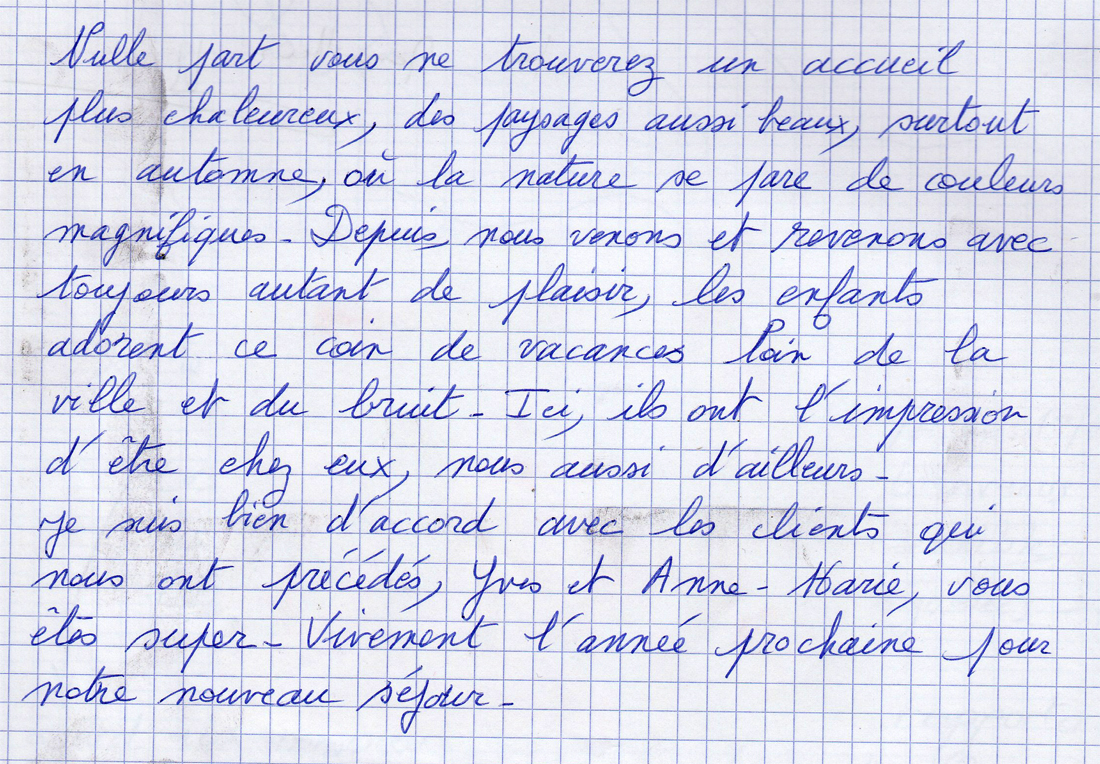 Nulle part vous ne trouverez un accueil
plus chaleureux, des paysages aussi beaux, surtout
en automne, où la nature se pare de couleurs
magnifiques. Depuis, nous venons et revenons avec
toujours autant de plaisir, les enfants
adorent ce coin de vacances loin de la
ville et du bruit. Ici, ils ont l'impression
d'être chez eux, nous aussi d'ailleurs.
Je suis bien d'accord avec les clients qui
nous ont précédés, Yves et Anne-Marie, vous
êtes super. Vivement l'année prochaine pour
notre nouveau séjour.